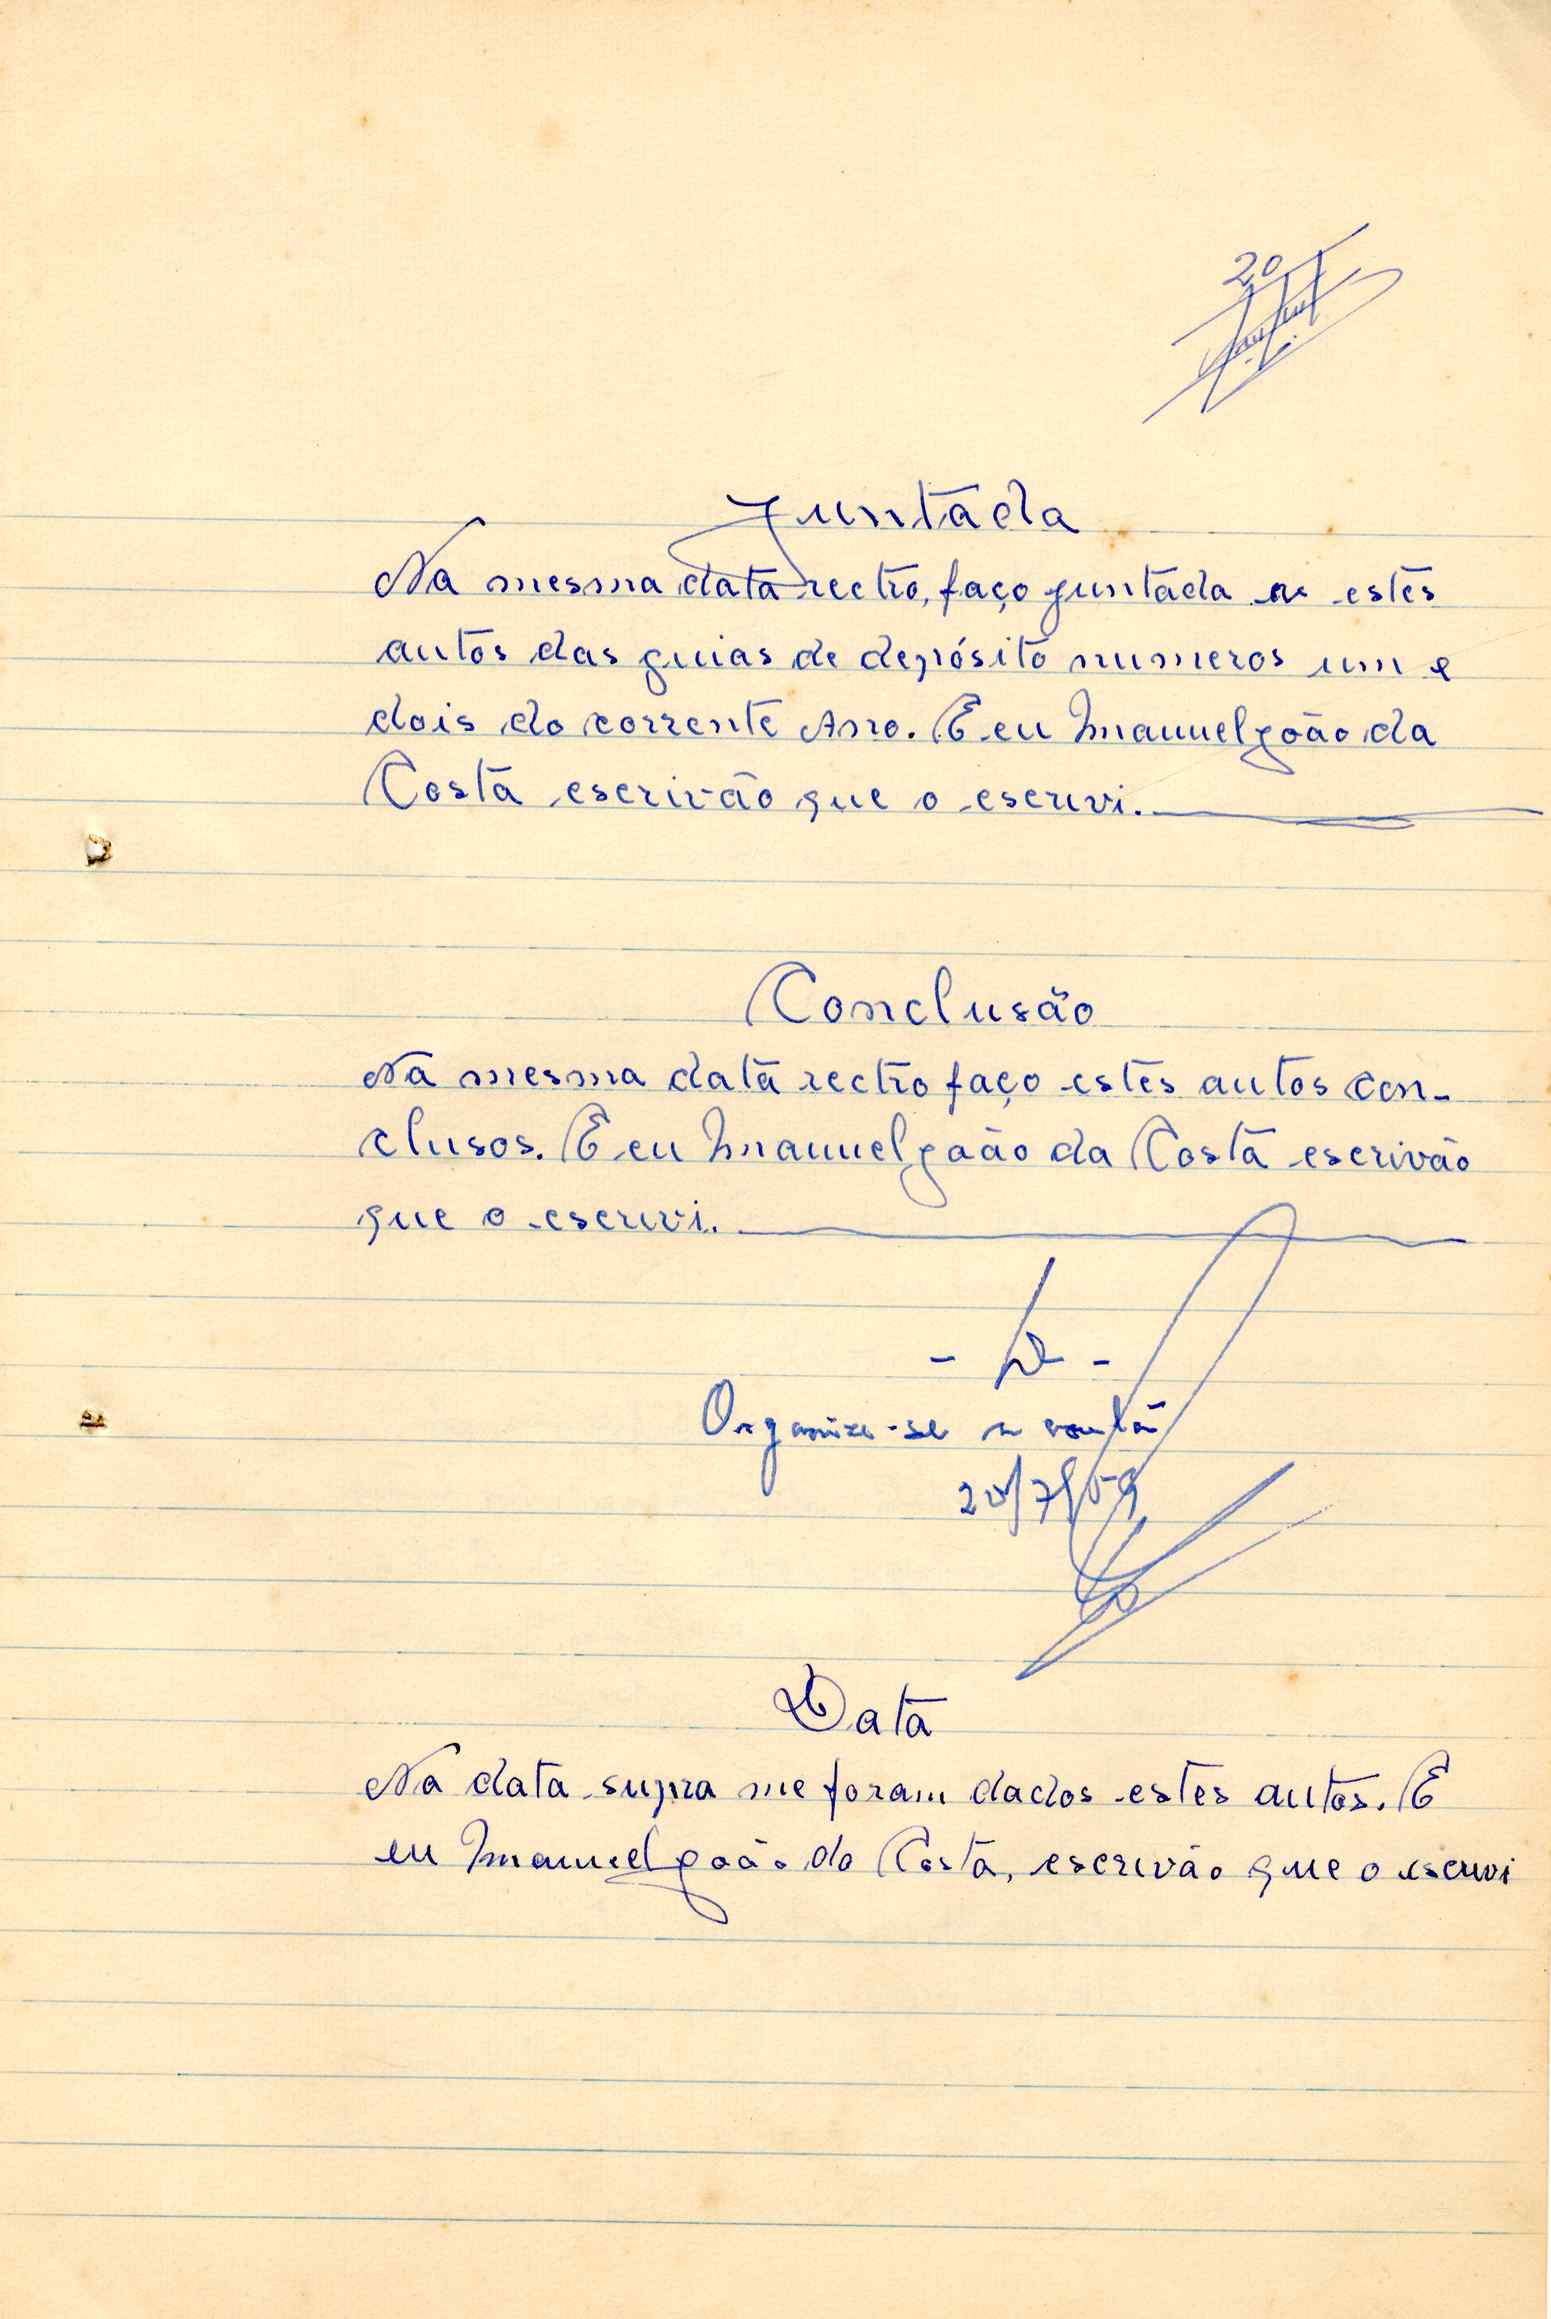 20
Juntada
Na mesma data rectro, faço juntada a estes
autos das guias de depósito numeros um e
dois do corrente Ano. E eu Manuel João da
Costa escrivão que o escrevi.
Conclusão
Na mesma data rectro faço estes autos con-
clusos. E eu Manuel João da Costa escrivão
que o escrevi.
Organize-se a conta
20/7/59
Data
Na data supra me foram dados estes autos. E
eu Manuel João da Costa, escrivão que o escrevi